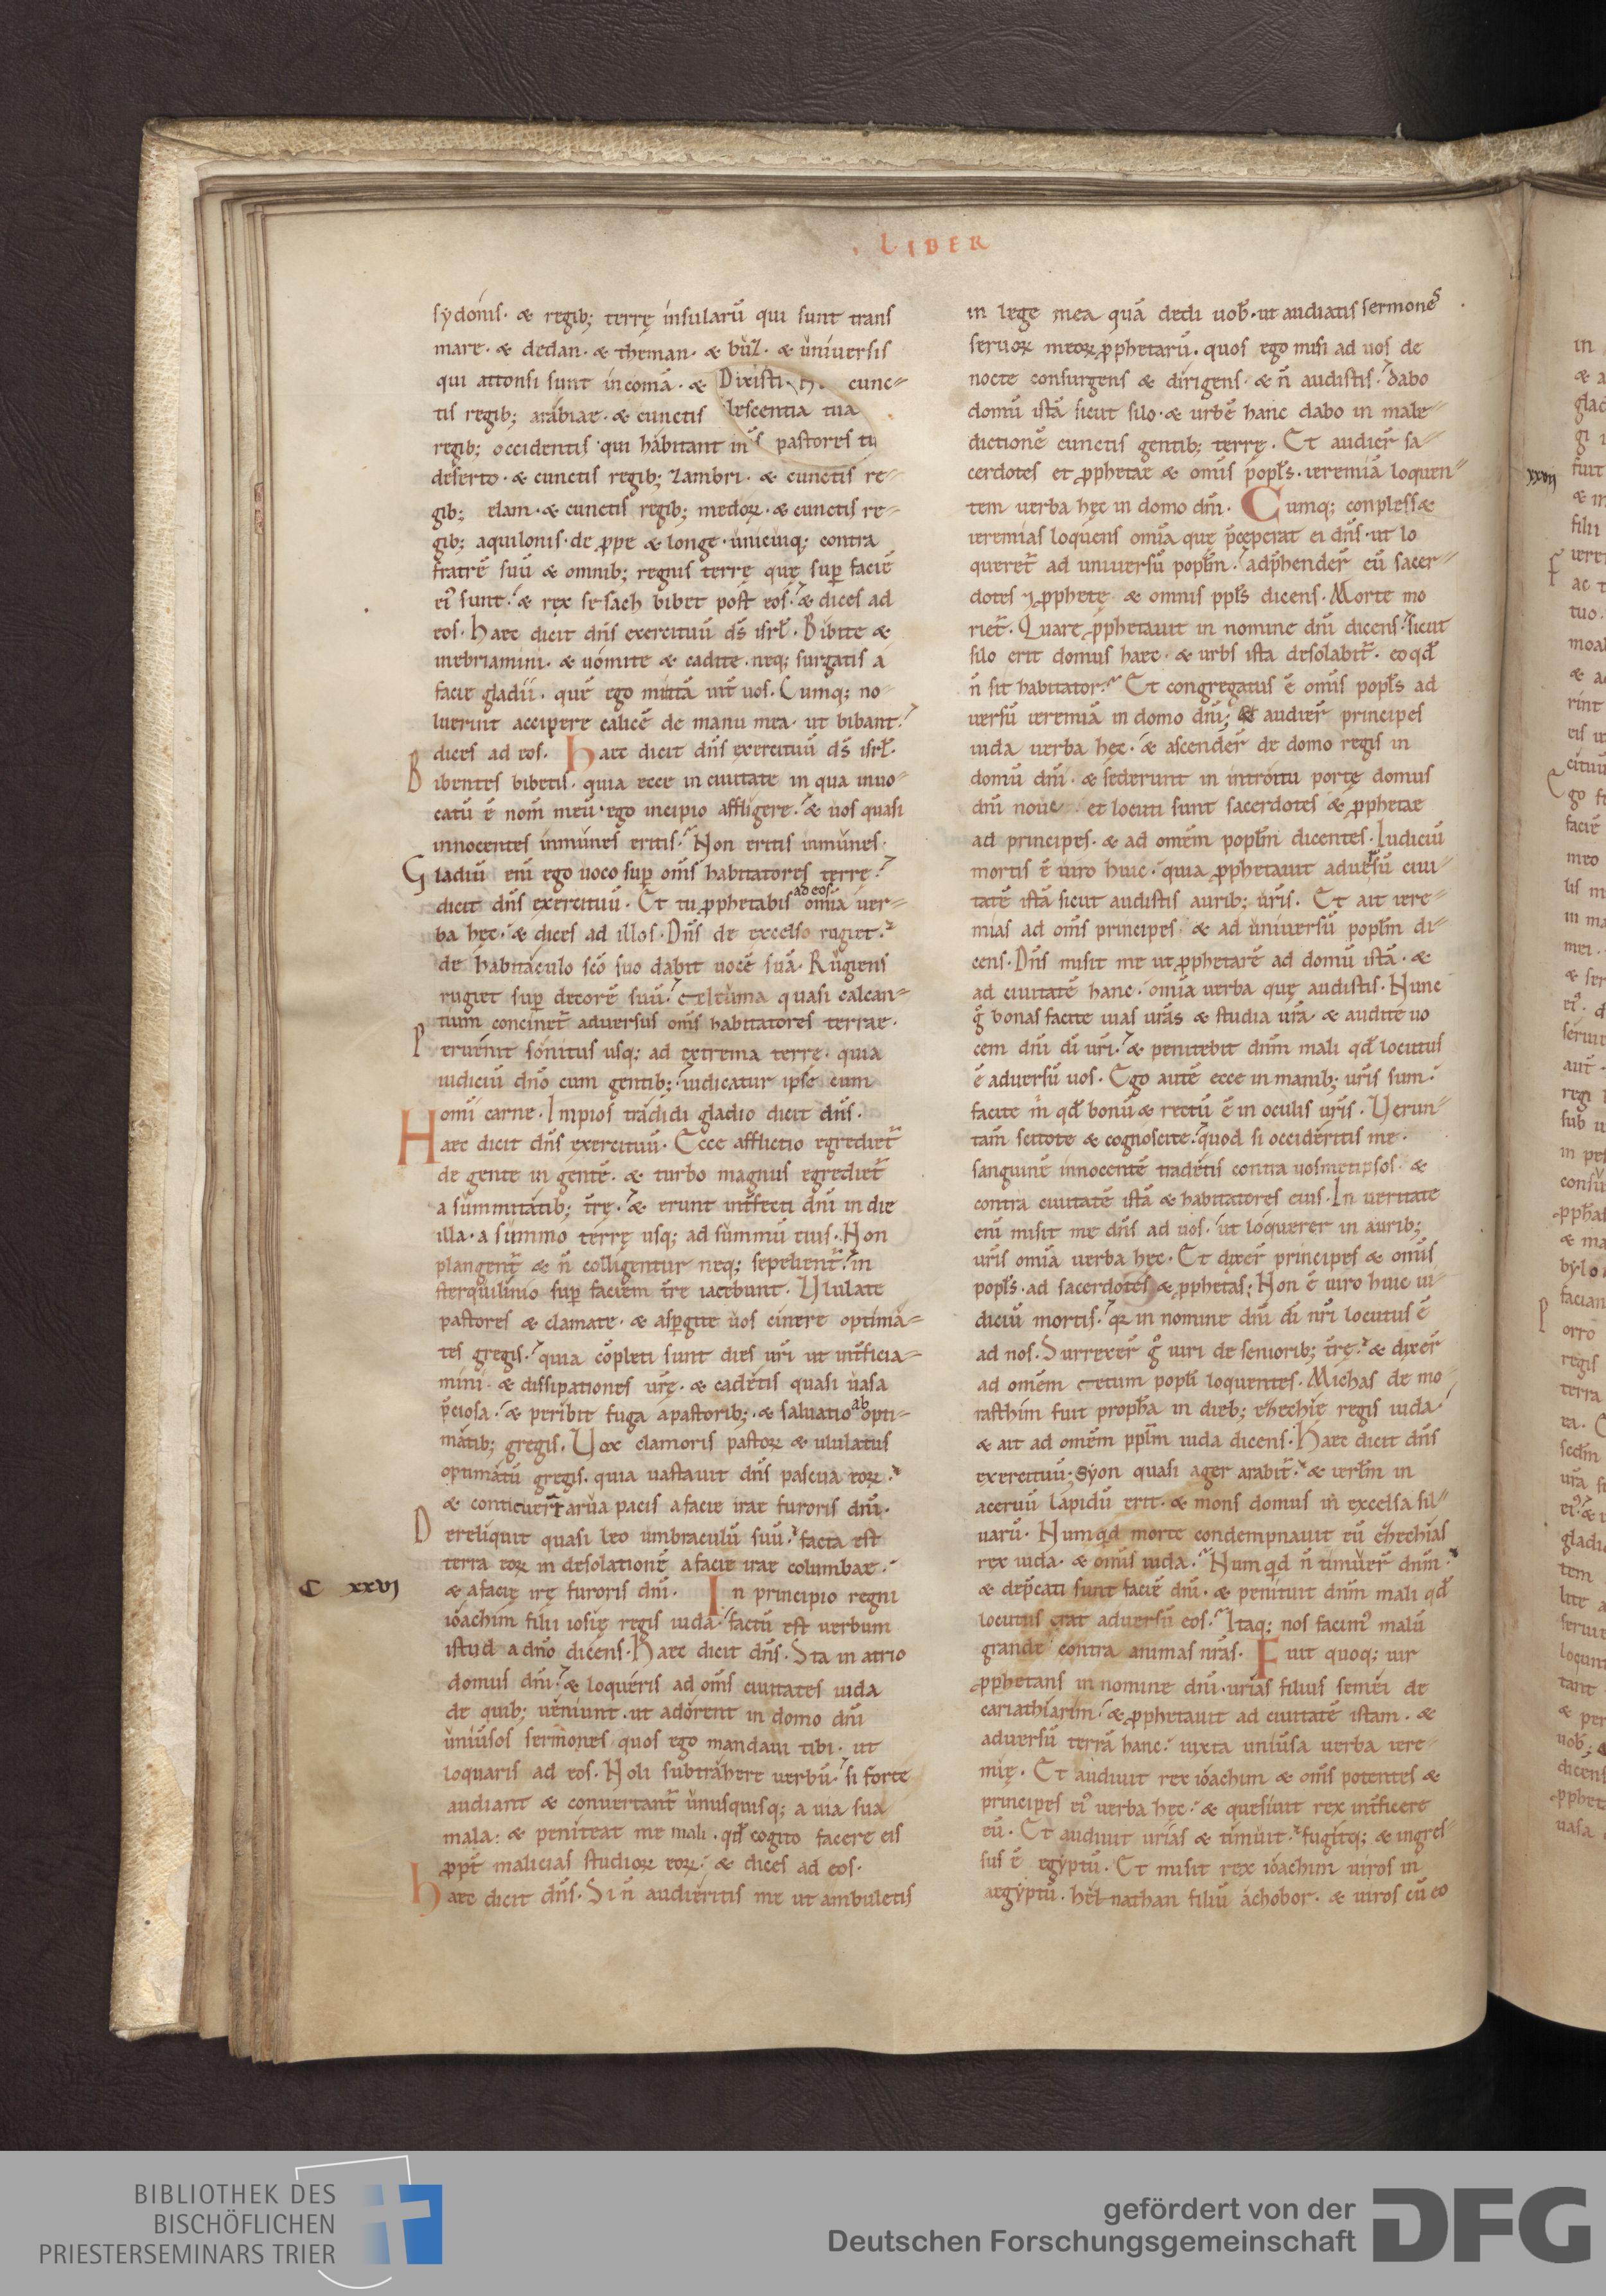 LIBER
sydonis · & regib; terrę insularū qui sunt trans
mare · & dedan · & theman · & buz · & universis
qui attonsi sunt in comā · & Dixisti cunc-
tis regib; arabiae · & cunctis lescentia tua
regib; occidentis · qui habitant in pastores tu
deserto · & cunctis regib; zambri · & cunctis re-
gib; elam · & cunctis regib; medoꝝ · & cunctis re-
gib; aquilonis · de ꝓpe & longe · unicuiq; contra
fratrē suū & omnib; regnis terrę quę sup faciē
ei' sunt · & rex sesach bibet post eos · & dices ad
eos · Haec dicit dn̄s exercituū ds̄ isrl̄ · Bibite &
inebriamini · & uomite & cadite · neq; surgatis a
facie gladii · quē ego mittā int̄ uos · Cumq; no-
luerint accipere calicē de manu mea · ut bibant ·
dices ad eos · Haec dicit dn̄s exercituū ds̄ isrl̄ ·
Bibentes bibetis · quia ecce in ciuitate in qua inuo-
catū ē nom̄ meū · ego incipio affligere · & uos quasi
innocentes inmunes eritis · Non eritis inmunes ·
Gladiū eni ego uoco sup om̄s habitatores terrę ·
dicit dn̄s exercituū · Et tu ꝓphetabis ad eos omīa uer-
ba hęc · & dices ad illos · Dn̄s de excelso rugiet ·
de habitaculo scō suo dabit uocē suā · Rugiens
rugiet sup decorē suū · celeuma quasi calcan-
tium concinet̄ adversus om̄s habitatores terrae ·
Peruenit sonitus usq; ad extrema terrę · quia
iudiciū dn̄o cum gentib; · iudicatur ipse cum
omī carne · Impios tradidi gladio dicit dn̄s ·
Haec dicit dn̄s exercituū · Ecce afflictio egrediet̄
de gente in gentē · & turbo magnus egrediet̄
a summitatib; tr̄ę · & erunt int̄fecti dn̄i in die
illa · a summo terrę usq; ad summū eius · Non
plangent̄ & n̄ colligentur neq; sepelient̄ · in
sterquilinio sup faciem tr̄e iacebunt · Ululate
pastores & clamate · & aspgite uos cinere optima-
tes gregis · quia cōpleti sunt dies uri ut int̄ficia-
mini · & dissipationes urę · & cadetis quasi uasa
p̄ciosa · & peribit fuga a pastorib; · & saluatio ab opti-
matib; gregis · Vox clamoris pastoꝝ & ululatus
optimatū gregis · quia uastauit dn̄s pascua eoꝝ ·
& conticuer̄ arua pacis a facie irae furoris dn̄i ·
Dereliquit quasi leo umbraculū suū · facta est
terra eoꝝ in desolationē a facie irae columbae ·
C xxvi
& a facię irę furoris dn̄i · In principio regni
ioachim filii iosię regis iuda · factū est verbum
istud a dn̄o dicens · Haec dicit dn̄s · Sta in atrio
domus dn̄i · & loqueris ad om̄s ciuitates iuda
de quib; ueniunt · ut adorent in domo dn̄i
uniūsos sermones quos ego mandaui tibi · ut
loquaris ad eos · Noli subtrahere verbū · si forte
audiant & convertant̄ unusquisq; a uia sua
mala : & peniteat me mali · qd̄ cogito facere eis
ꝓpt̄ malicias studioꝝ eoꝝ · & dices ad eos ·
Haec dicit dn̄s · Si n̄ audieritis me ut ambuletis
in lege mea quā dedi uob · ut audiatis sermones
seruoꝝ meoꝝ ꝓphetarū · quos ego misi ad uos de
nocte consurgens & dirigens · & n̄ audistis · dabo
domū istā sicut silo · & urbē hanc dabo in male-
dictionē cunctis gentib; terrę · Et audier̄ sa-
cerdotes et ꝓphetae & omīs popls · ieremiā loquen-
tem uerba hęc in domo dn̄i · Cumq; conpless&
ieremias loquens omīa quę p̄ceperat ei dn̄s · ut lo
queret̄ ad universū popl̄m · adp̄hender̄ eū sacer-
dotes ⁊ ꝓphetę & omnis ppls dicens · Morte mo
riet̄ · Quare ꝓphetauit in nomine dn̄i dicens · sicut
silo erit domus haec · & urbs ista desolabit̄ · eo qd̄
n̄ sit habitator · Et congregatus ē omīs popls ad
uersū ieremiā in domo dn̄i ; & audier̄ principes
iuda uerba hęc · & ascender̄ de domo regis in
domū dn̄i · & sederunt in introitu portę domus
dn̄i noue et locuti sunt sacerdotes & ꝓphetae
ad principes · & ad omēm popl̄m dicentes · Iudiciū
mortis ē uiro huic · quia ꝓphetauit aduersū ciui-
tatē istā sicut audistis aurib; uris · Et ait iere-
mias ad om̄s principes & ad universū popl̄m di-
cens · Dn̄s misit me ut ꝓphetarē ad domū istā · &
ad ciuitatē hanc · omīa uerba quę audistis · Nunc
g̊ bonas facite uias urās & studia urā · & audite uo
cem dn̄i dī uri · & penitebit dnm̄ mali qd̄ locutus
ē adversū uos · Ego autē ecce in manib; uris sum ·
facite m qd̄ bonū & rectū ē in oculis uris · Verun-
tam̄ scitote & cognoscite · quod si occideritis me ·
sanguinē innocentē tradetis contra uosmetipsos · &
contra ciuitatē istā & habitatores eius · In ueritate
eni misit me dn̄s ad uos · ut loquerer in aurib;
uris omīa uerba hęc · Et dixer̄ principes & omīs
popls · ad sacerdotes & ꝓphetas · Non ē uiro huic iu-
diciū mortis · qꝛ in nomine dn̄i dī nri locutus ē
ad nos · Surrexer̄ g̊ uiri de seniorib; tr̄ę · & dixer̄
ad omēm cetum popli loquentes · Michas de mo
rasthim fuit propha in dieb; ezechię regis iuda
& ait ad omēm ppl̄m iuda dicens · Haec dicit dn̄s
exercituū · Syon quasi ager arabit̄ · & ierlm̄ in
aceruū lapidū erit · & mons domus in excelsa sil-
uarū · Numqd morte condempnauit eū ezechias
rex iuda · & omīs iuda · Numqd n̄ timuer̄ dnm̄ ·
& dep̄cati sunt faciē dn̄i · & penituit dnm̄ mali qd̄
locutus erat adversū eos · Itaq; nos facim' malū
grande contra animas nrās · Fuit quoq; uir
ꝓphetans in nomine dn̄i · urias filius semei de
cariathiarim · & ꝓphetauit ad ciuitatē istam · &
adversū terrā hanc · iuxta uniūsa uerba iere-
mię · Et audiuit rex ioachim & om̄s potentes &
principes ei' uerba hęc · & quesiuit rex int̄ficere
eū · Et audiuit urias & timuit · fugitq; & ingres-
sus ē egyptū · Et misit rex ioachim uiros in
aegyptū · helnathan filiū achobor · & uiros cū eo
xxvii
BIBLIOTHEK DES
BISCHÖFLICHEN
PRIESTERSEMINARS TRIER
gefördert von der
Deutschen Forschungsgemeinschaft
DFG